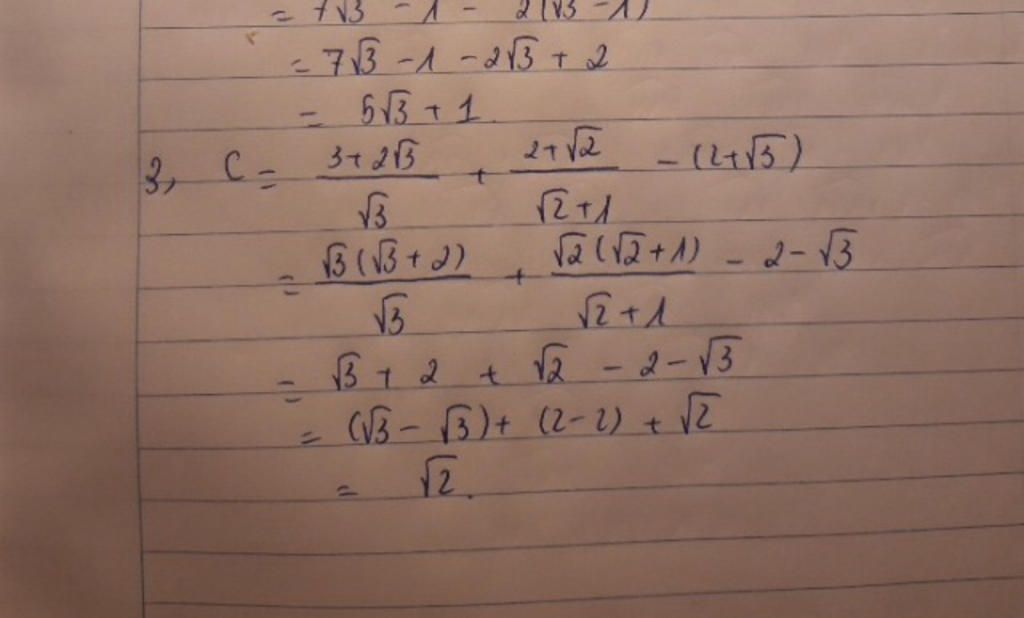 = 7√3 - 1 - 2(√3 - 1)
= 7√3 - 1 - 2√3 + 2
= 5√3 + 1.
3, C = (3 + 2√3)/√3 + (2 + √2)/(√2 + 1) - (2 + √3)
= √3(√3 + 2)/√3 + √2(√2 + 1)/(√2 + 1) - 2 - √3
= √3 + 2 + √2 - 2 - √3
= (√3 - √3) + (2 - 2) + √2
= √2.